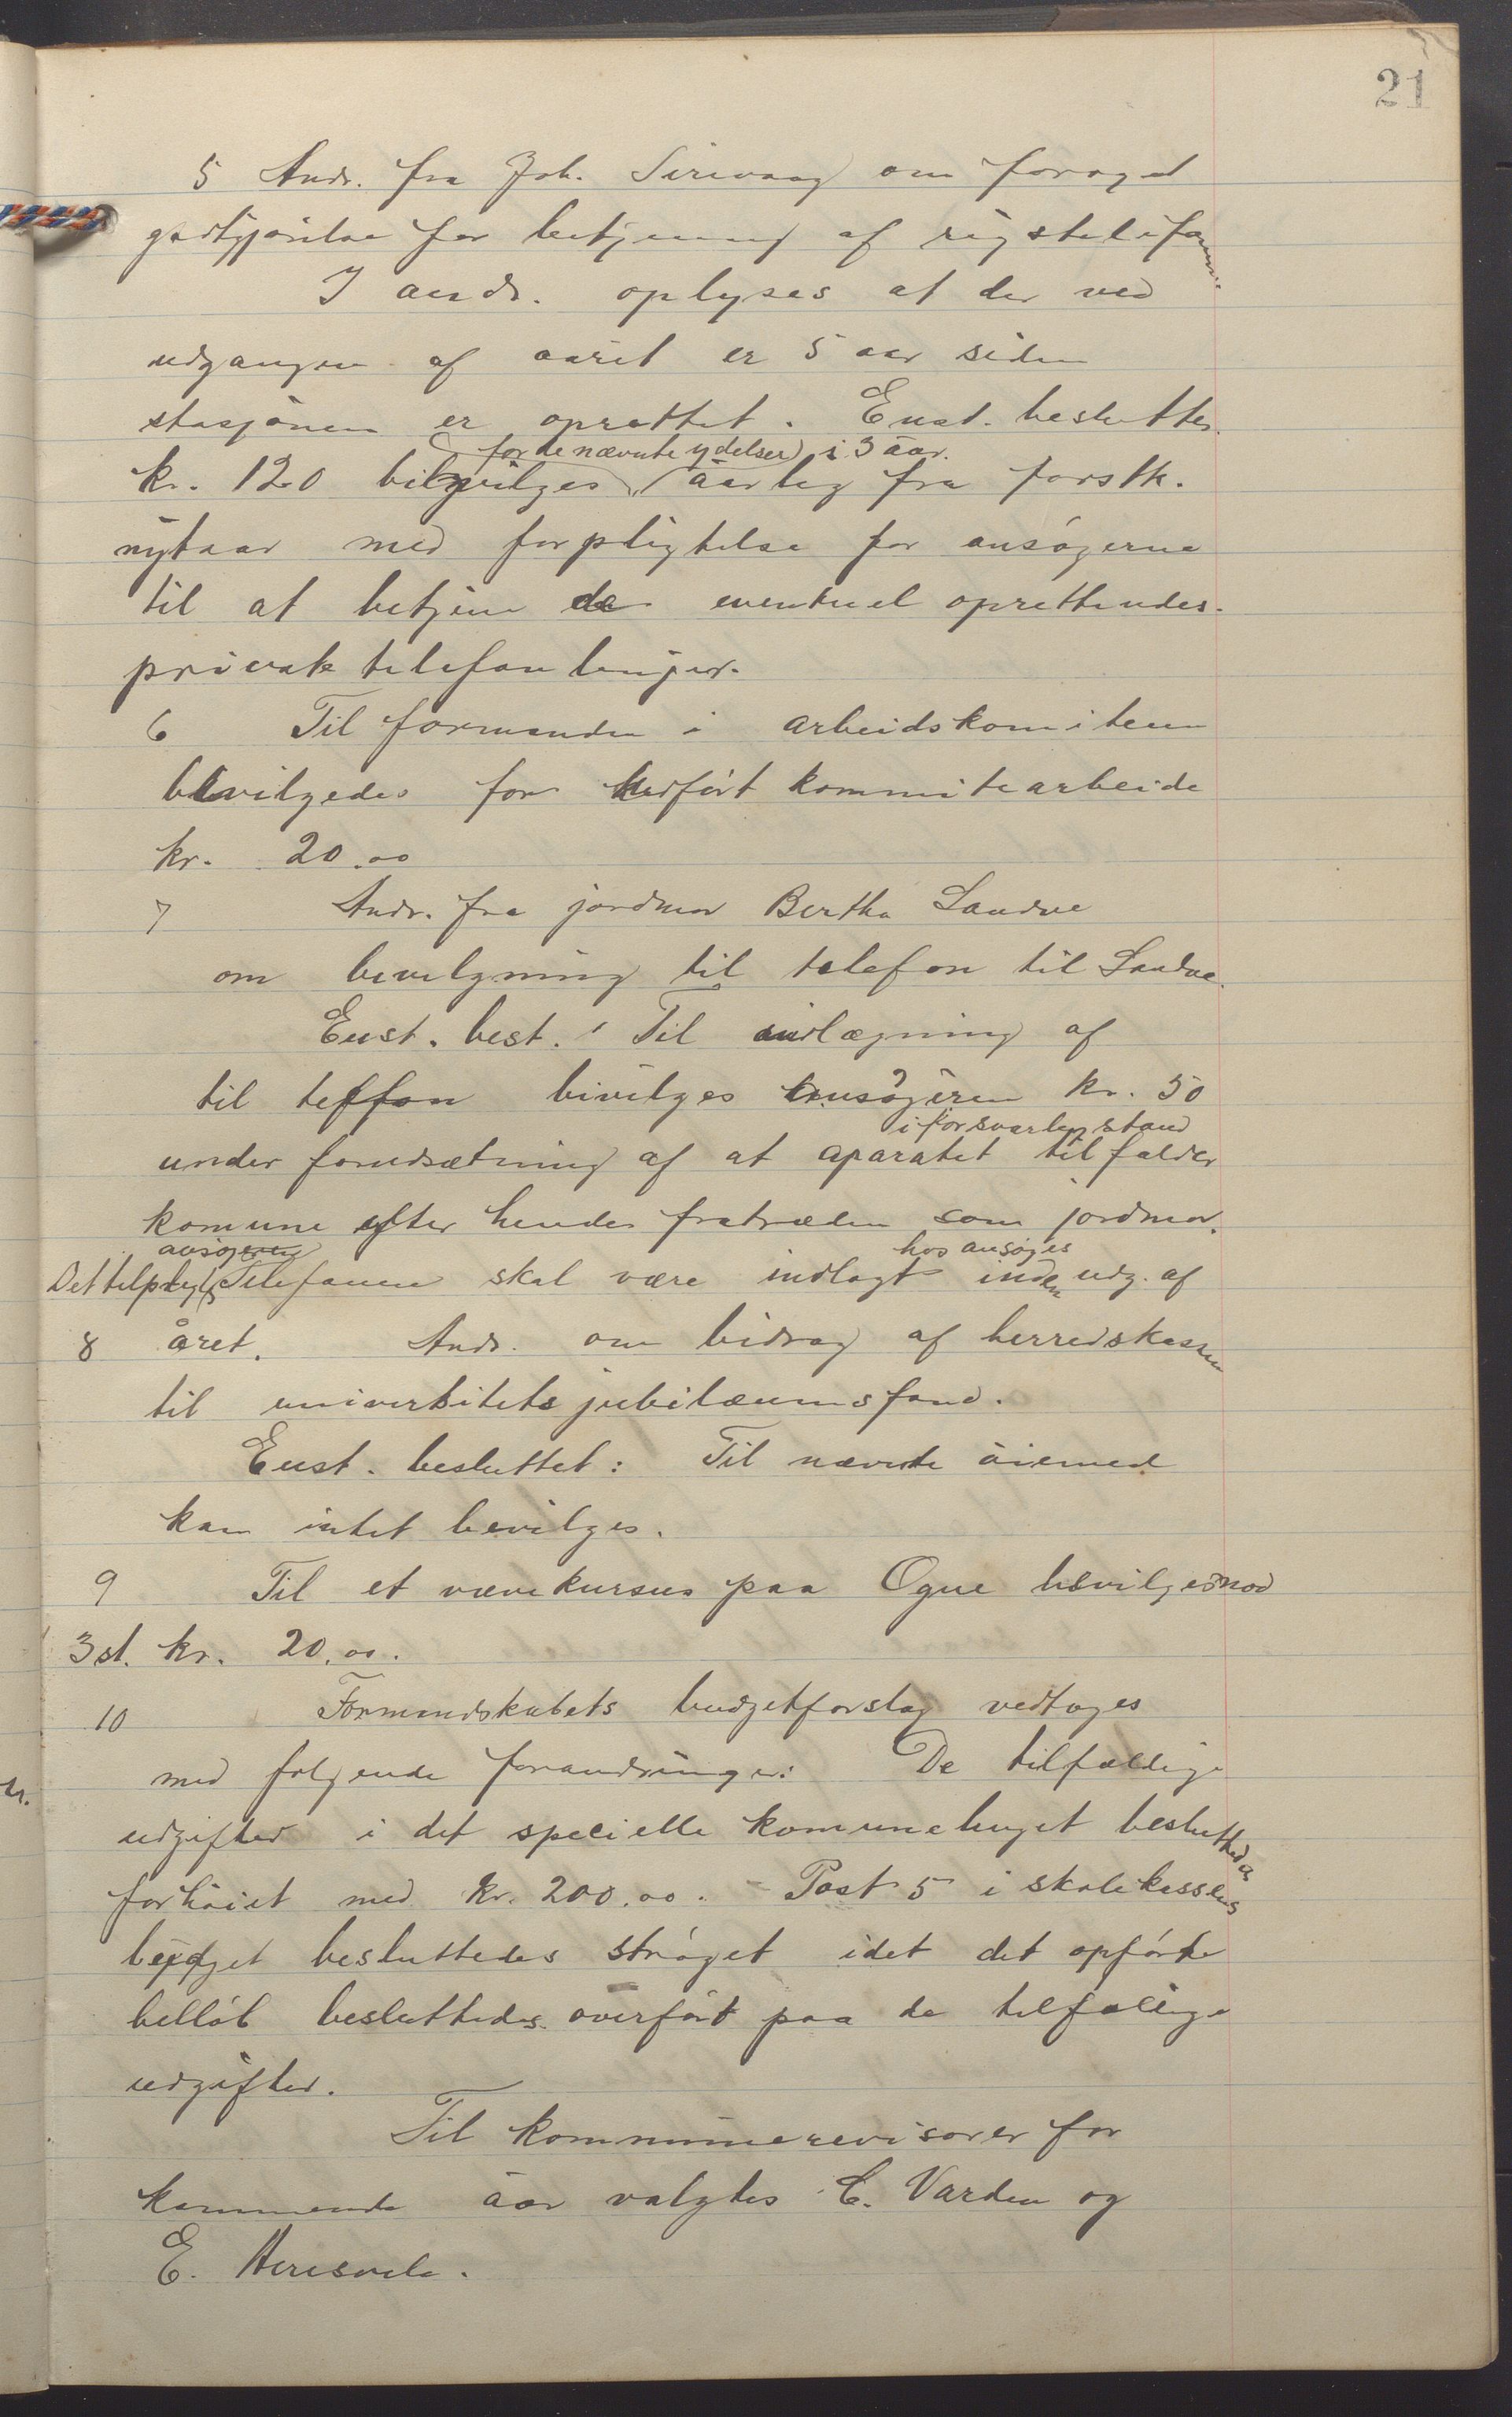 21
5 Andr. fra Joh. Sirevaag om forøget
godtgjørelse for betjening af rigstelefonen.
I andr. oplyses at der ved
udgangen af aaret er 5 aar siden
stasjonen er oprettet. Enst. besluttet
for de nævnte ydelser i 3 aar.
kr. 120 bilgvilges aarlig fra førstk.
nytaar med forpligtelse for ansøgerne
til at betjene de eventuel oprettendes
private telefonlinjer.
6 Til formanden i arbeidskomiteen
bevilgedes for udført kommitearbeide
kr. 20.00
7 Andr. fra jordmor Bertha Sandve
om bevilgning til telefon til Sandve.
Enst. best. Til indlægning af
til teffon bivilges ansøgeren kr. 50
i forsvarlig stand
under forudsætning af at aparatet tilfalder
komune efter hendes fratræden som jordmor.
ansøgeren hos ansøges
Det tilpligt Telefonen skal være indlagt inden udg. af
8 året. Andr. om bidrag af herredskassen
til universitets jubilæumsfond.
Enst. besluttet: Til nævnte øiemed
kan intet bevilges.
9 Til et vævekursus paa Ogne bevilges mod
3 st. kr. 20.00.
10 Formandskabets budgetforslag vedtoges
med følgende forandringer: De tilfældige
udgifter i det specielle komunebuget besluttedes
forhøiet med kr. 200.00. - Post 5 i skolekassens
budget besluttedes strøget idet det opførte
belløb besluttedes overført paa de tilfælige
udgifter.
Til kommunerevisorer for
kommende aar valgtes C. Varden og
E. Heresvela.